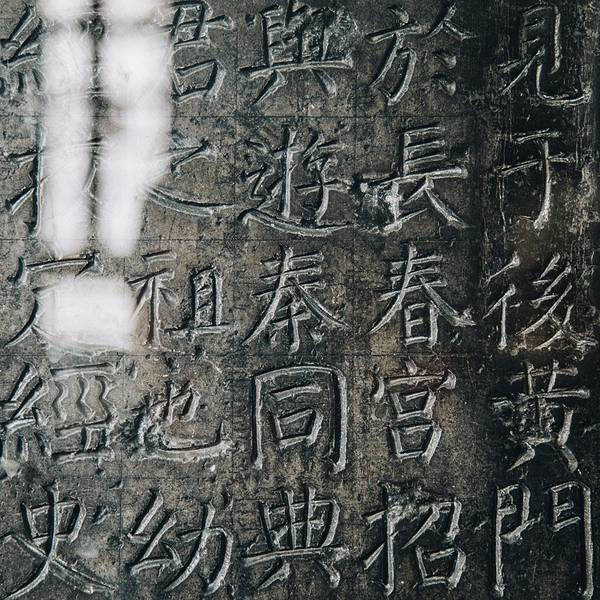 見于後黃門
於長春宮招
與遊秦同典
君之祖也幼
定經史